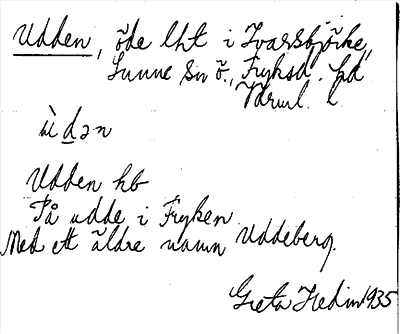 Udden, öde lht i Ivarsbjörke,
Sunne sn ö., Fryksd. hd
Värml. l
ùdən
Udden hb
På udde i Fryken
Med ett äldre namn Uddeberg.
Greta Hedin 1935